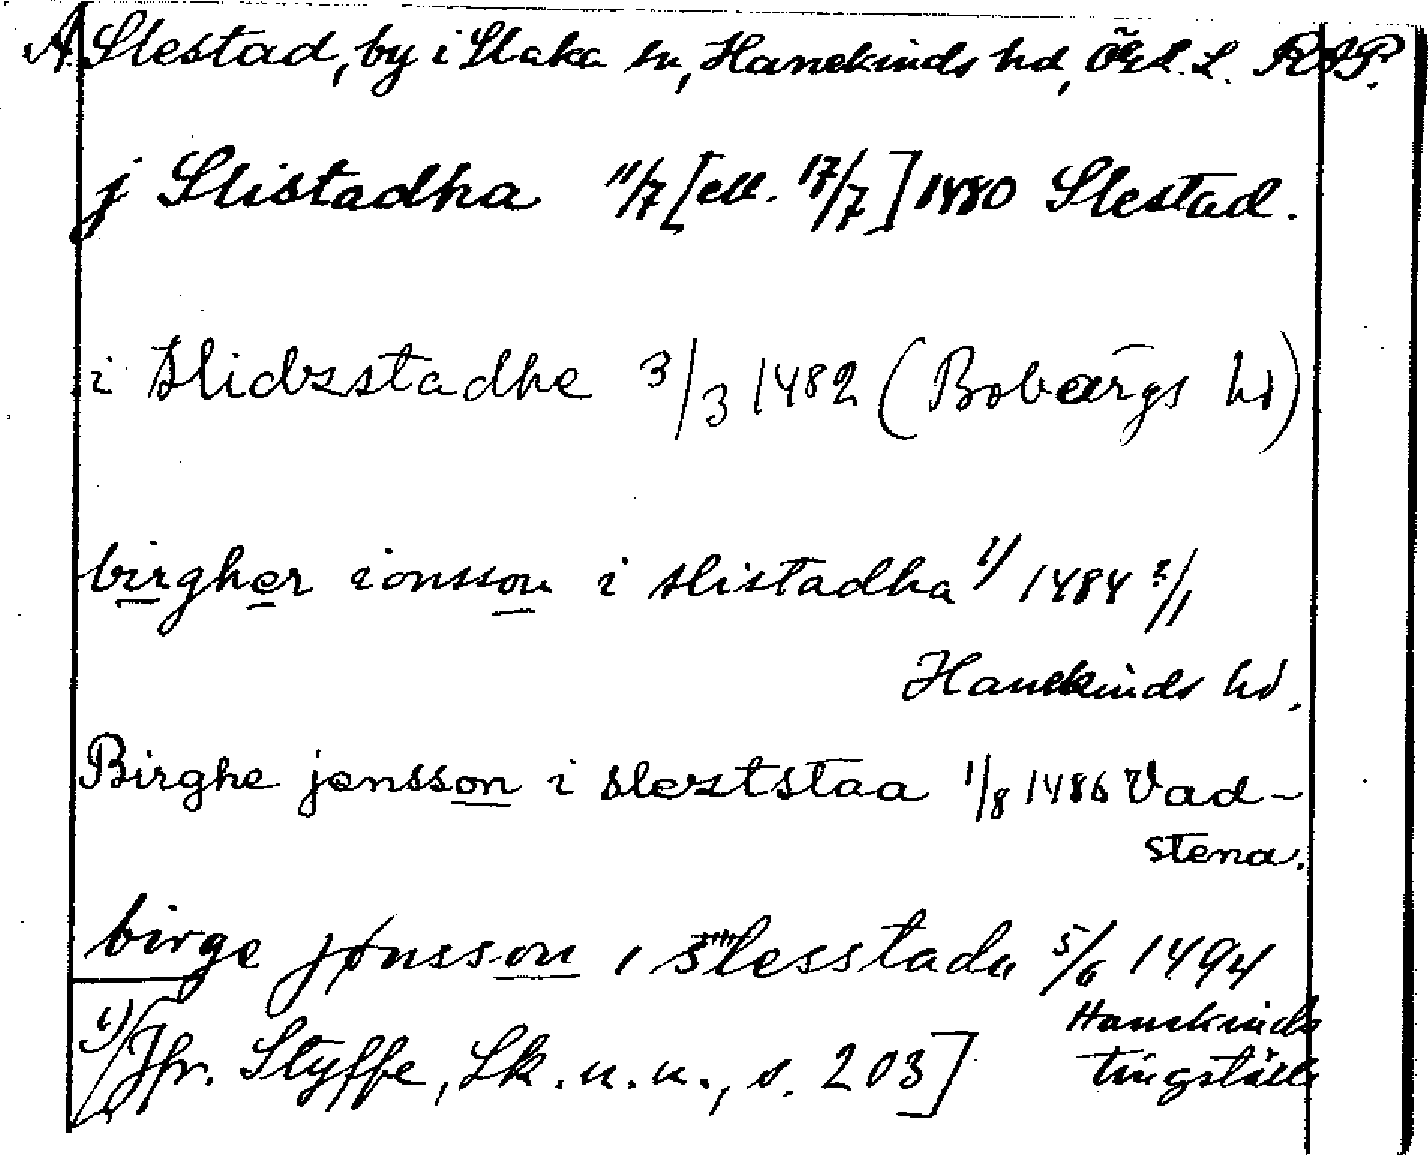 A Slestad, by i Slaka sn, Hanekinds hd, Ög. L. RAP.
j Slistadha 11/7 [ell. 17/7] 1480 Slestad.
i Slidzstadhe 3/3 1482 (Bobærgs hd)
birgher ionsson i slistadha 1) 1484 2/1
Hanekinds hd.
Birghe jensson i sleztstaa 1/8 1486 Vad-
stena.
birge jønsson i Slesstada 5/6 1494
Hanekinds
tingställe
1) [Jfr. Styffe, Sk. u. u., s. 203]